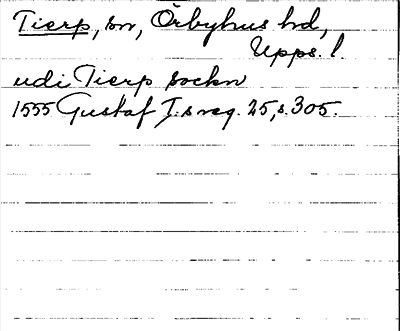 Tierp, sn, Örbyhus hd,
Upps. l.
udi Tierp sockn
1555 Gustaf I:s reg. 25, s. 305.